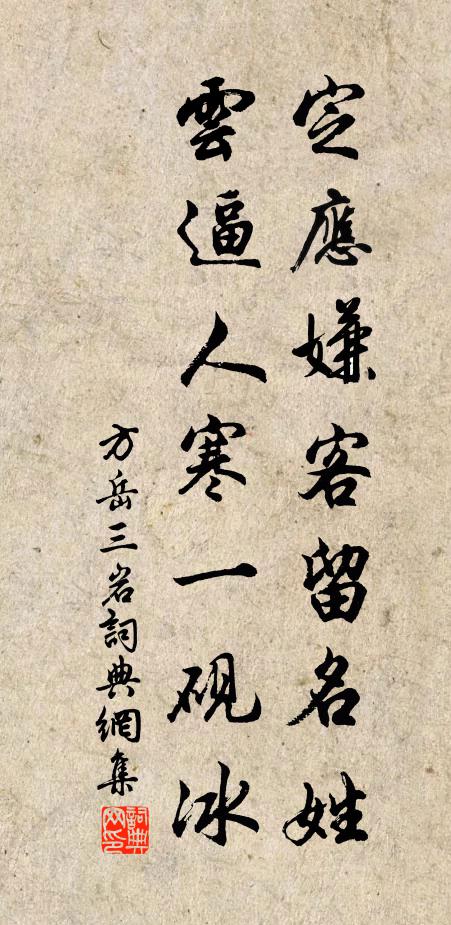 定應嫌客留名姓
雲逼人寒一硯冰
方岳三岩詞典網集
詞典網印